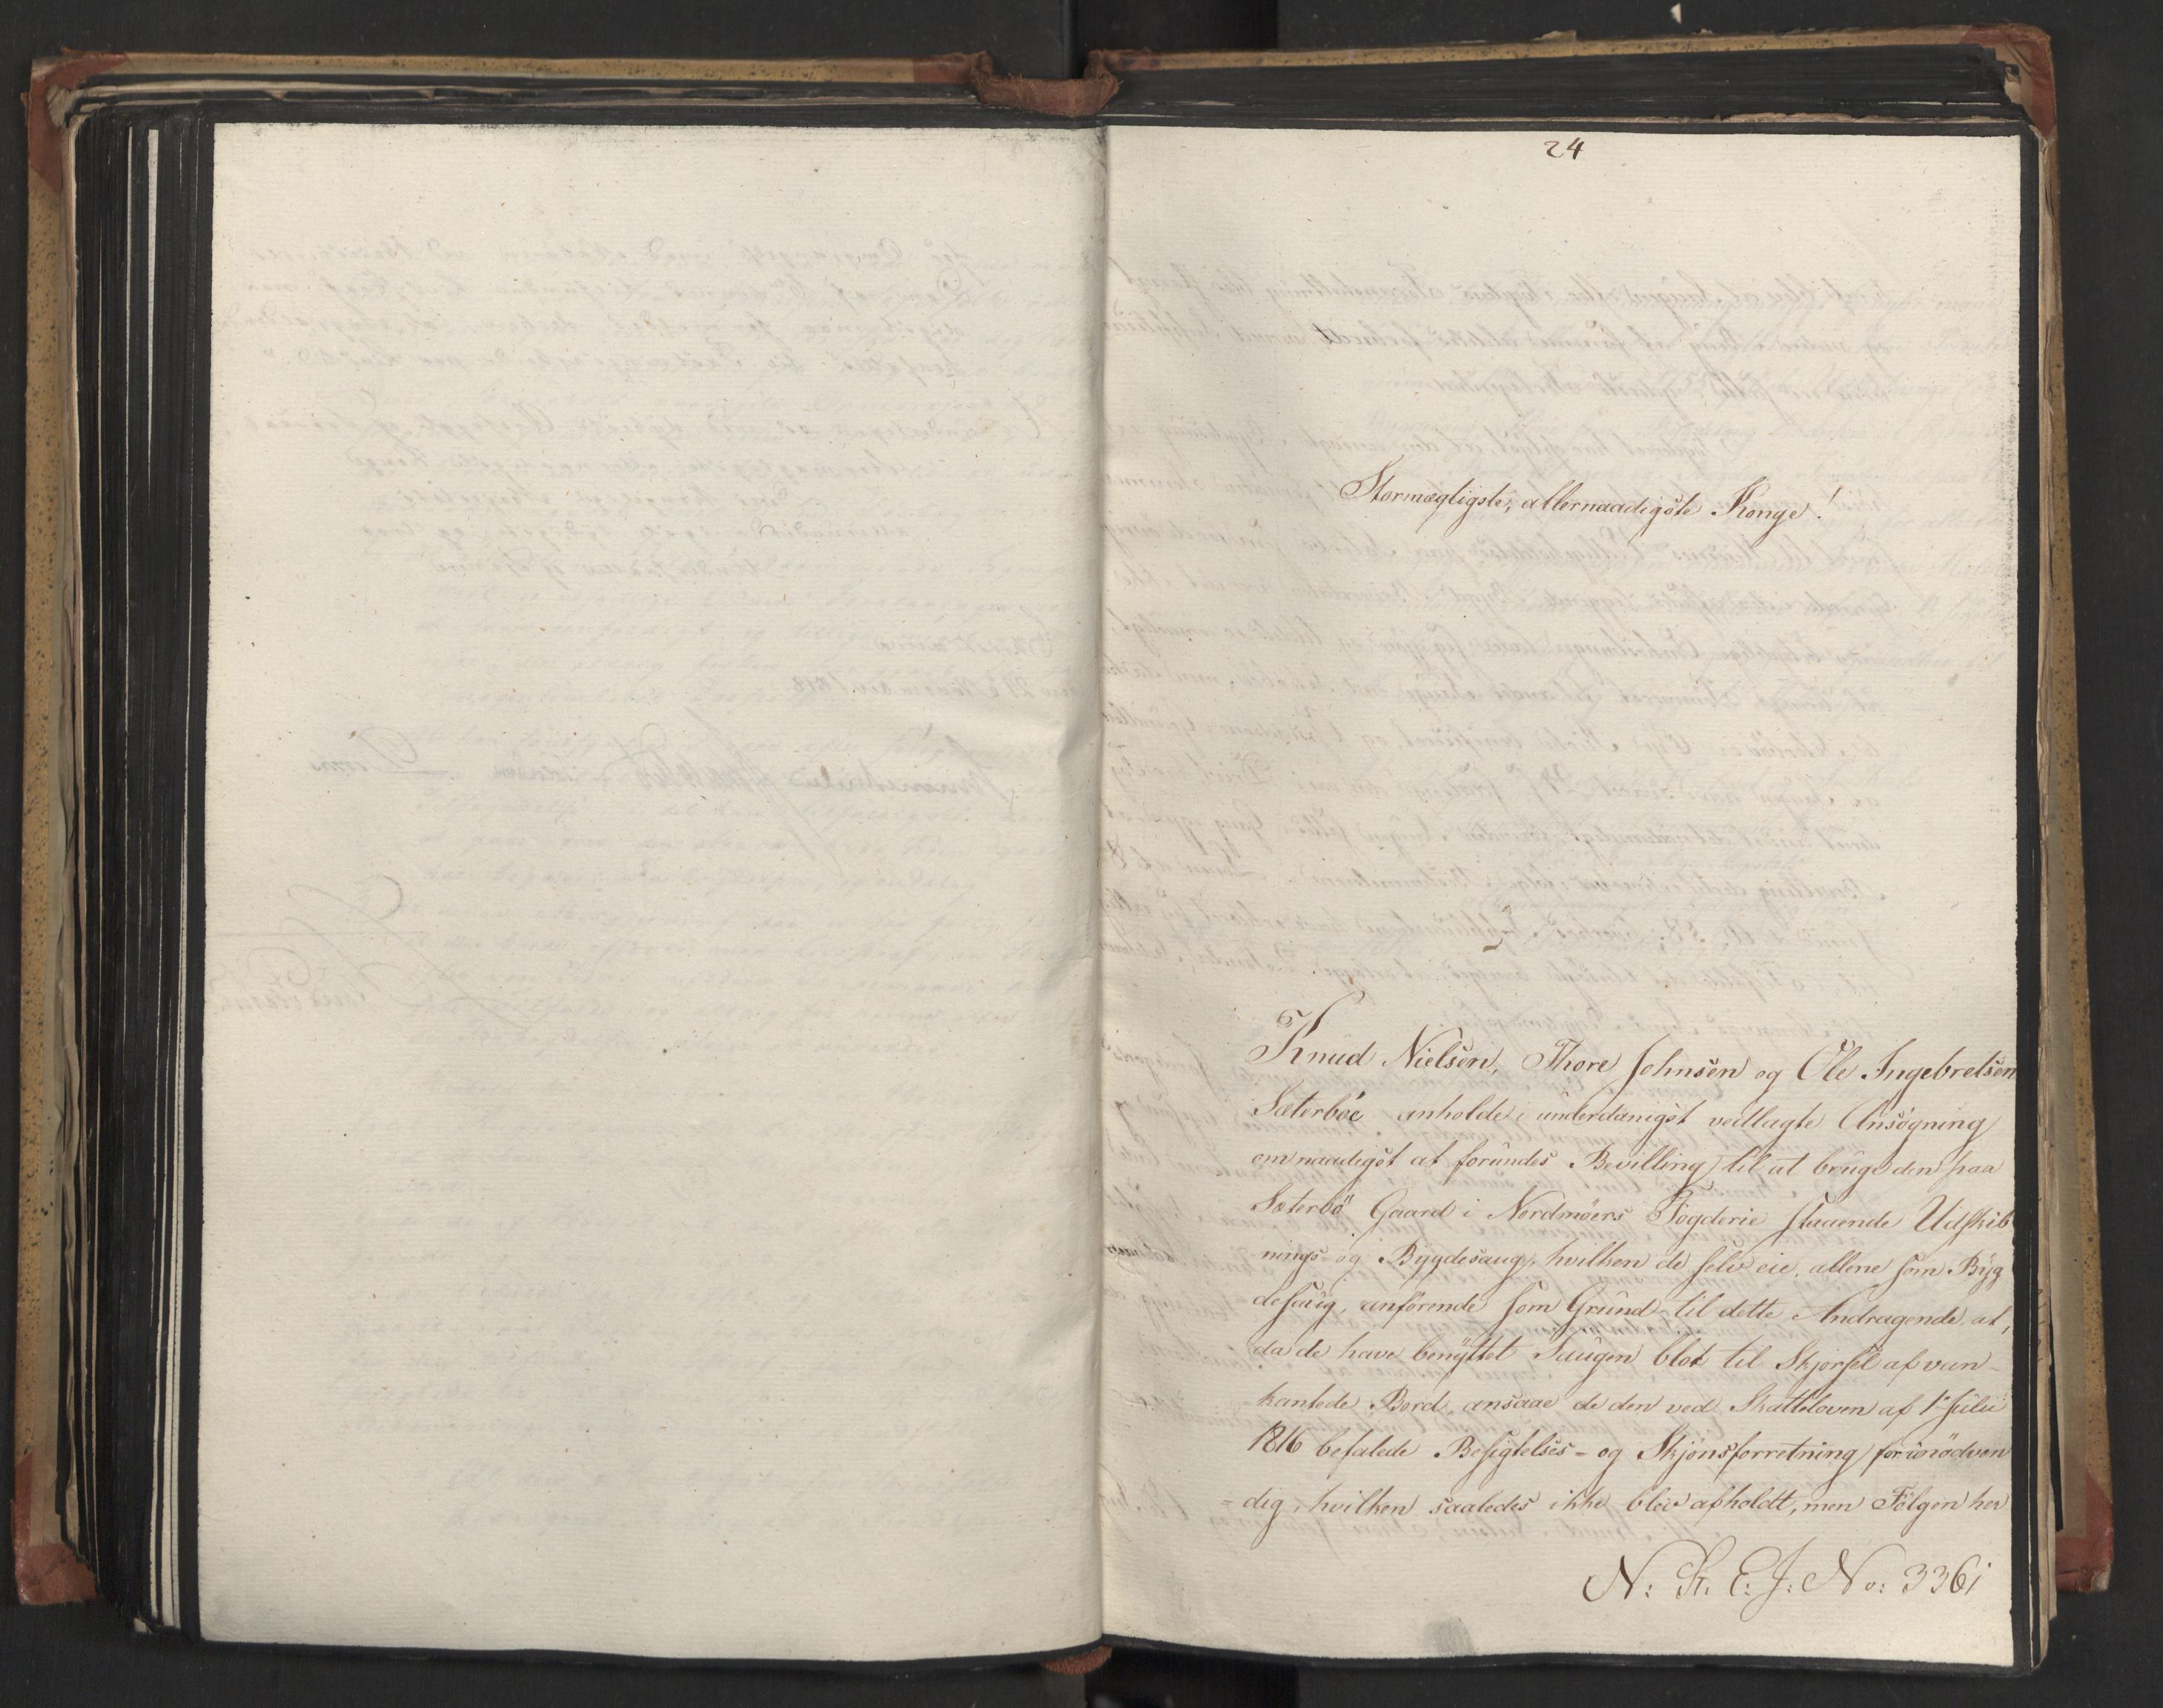 24
Stormægtigste, allernaadigste Konge!
Knud Nielsen, Thore Johnsen og Ole Ingebretsen
Sæterböe anholde i underdanigst vedlagte Ansögning
om naadigst at forundes Bevilling til at bruge den paa
Sæterbö Gaard i Nordmöers Fogderie staaende Udskib
nings- og Bygdesaug, hvilken de selv eie, allene som Byg
desaug, anförende som Grund til dette Andragende, at,
da de have benyttet Saugen blot til Skjorsel af van-
kantede Bord, ansaae de den ved Skatteloven af 1ste Julii
1816 befalede Besigtelses- og Skjönsforretning for unödven
-dig, hvilken saaledes ikke blev afholdt, men Fölgen her
N: St. C: J: No: 3361